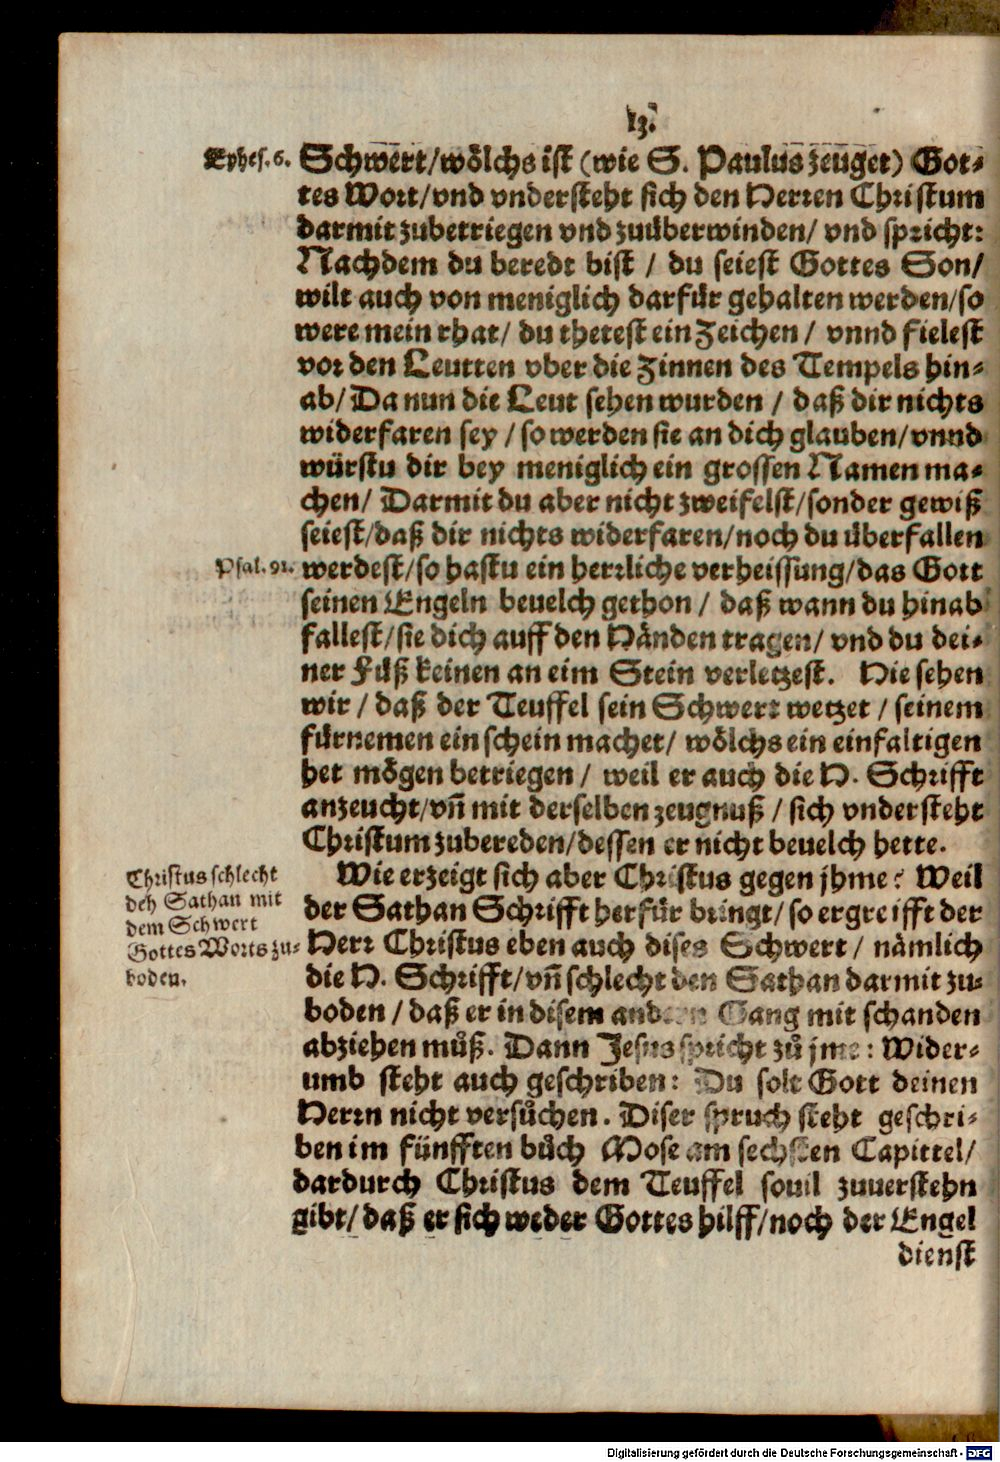 13.
Ephes. 6.
Schwert/wölchs ist (wie S. Paulus zeuget) Got-
tes Wort/vnd vndersteht sich den Herren Christum
darmit zubetriegen vnd zuüberwinden/ vnd spricht:
Nachdem du beredt bist / du seiest Gottes Son/
wilt auch von meniglich darfür gehalten werden/so
were mein rhat/ du thetest ein Zeichen / vnnd fielest
vor den Leutten vber die Zinnen des Tempels hin-
ab/ Da nun die Leut sehen wurden / daß dir nichts
widerfaren sey / so werden sie an dich glauben/vnnd
würstu dir bey meniglich ein grossen Namen ma-
chen/ Darmit du aber nicht zweifelst/sonder gewiß
seiest/daß dir nichts widerfaren/noch du überfallen
Psal. 91.
werdest/so hastu ein herrliche verheissung/das Gott
seinen Engeln beuelch gethon / daß wann du hinab
fallest/sie dich auff den Händen tragen/ vnd du dei-
ner Füß keinen an eim Stein verletzest. Hie sehen
wir / daß der Teuffel sein Schwert wetzet / seinem
fürnemen ein schein machet/ wölchs ein einfaltigen
het mögen betriegen / weil er auch die H. Schrifft
anzeucht/vñ mit derselben zeugnuß / sich vndersteht
Christum zubereden/dessen er nicht beuelch hette.
Christus schlecht
deh Sathan mit
dem Schwert
Gottes Worts zu-
boden.
Wie erzeigt sich aber Christus gegen jhme? Weil
der Sathan Schrifft herfür bringt/ so ergreifft der
Herr Christus eben auch dises Schwert / nämlich
die H. Schrifft/vñ schlecht den Sathan darmit zu-
boden / daß er in disem andern Gang mit schanden
abziehen müß. Dann Jesus spricht zů jme: Wider-
umb steht auch geschriben: Du solt Gott deinen
Herrn nicht versůchen. Diser spruch steht geschri-
ben im fünfften bůch Mose am sechsten Capittel/
dardurch Christus dem Teuffel souil zuuerstehn
gibt/ daß er sich weder Gottes hilff/noch der Engel
dienst
Digitalisierung gefördert durch die Deutsche Forschungsgemeinschaft - DFG